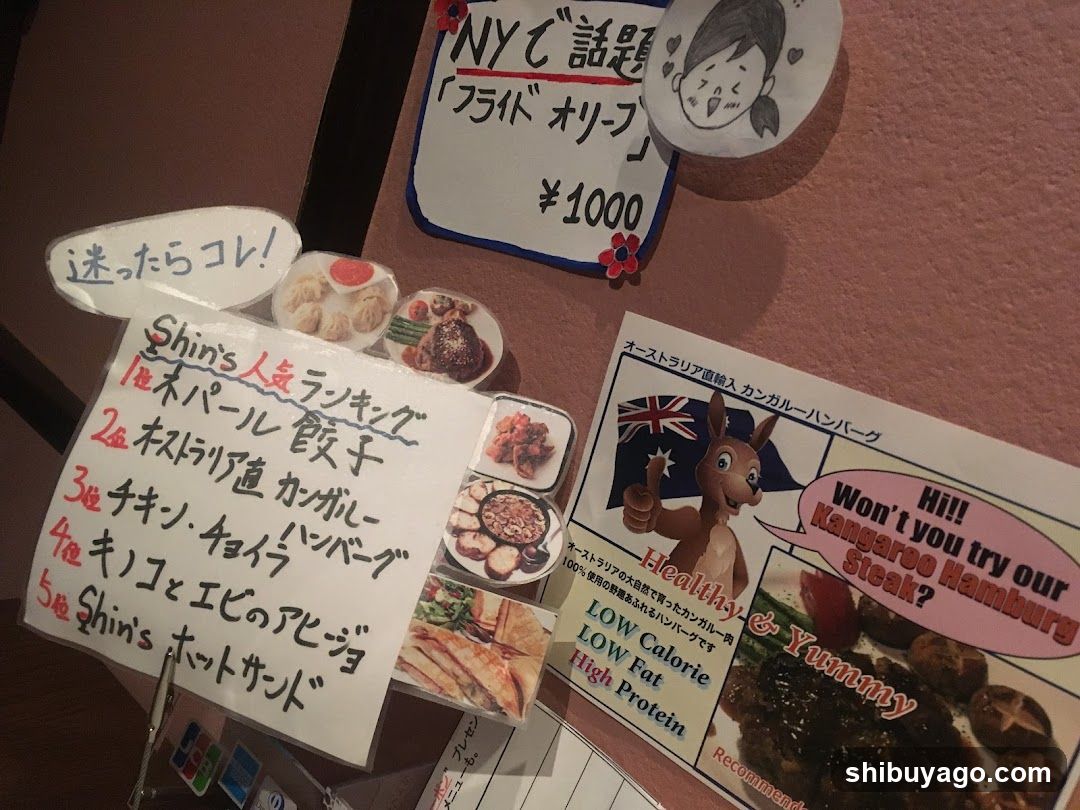 NYで話題
「フライド オリーブ」
¥1000
迷ったらコレ!
Shin's 人気ランキング
1位 ネパール餃子
2位 オーストラリア直 カンガルー
ハンバーグ
3位 チキン・チョイラ
4位 キノコとエビのアヒージョ
5位 Shin's ホットサンド
オーストラリア直輸入 カンガルーハンバーグ
Hi!!
Won't you try our
Kangaroo Hamburg
Steak?
Healthy & Yummy
オーストラリアの大自然で育ったカンガルー肉
100%使用の野趣あふれるハンバーグです
LOW Calorie
LOW Fat
High Protein
Recommend
プレゼン
メニューも。
JCB
shibuyago.com